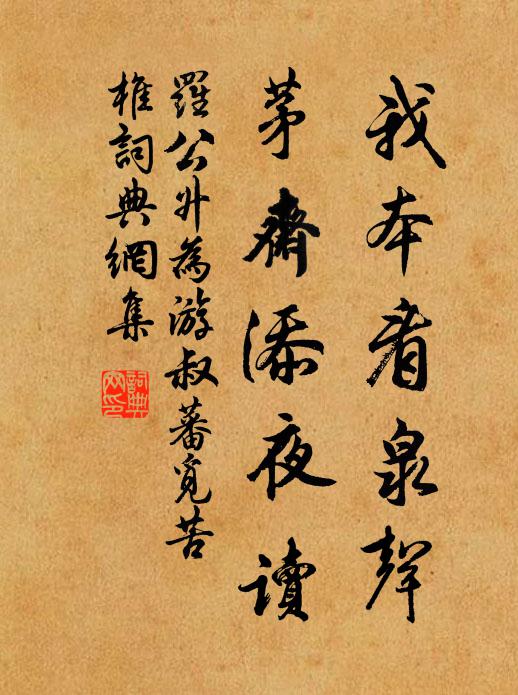 我本看泉聲
茅齋添夜讀
羅公升為游叔蕃覓苦
椎詞典網集
詞典網印